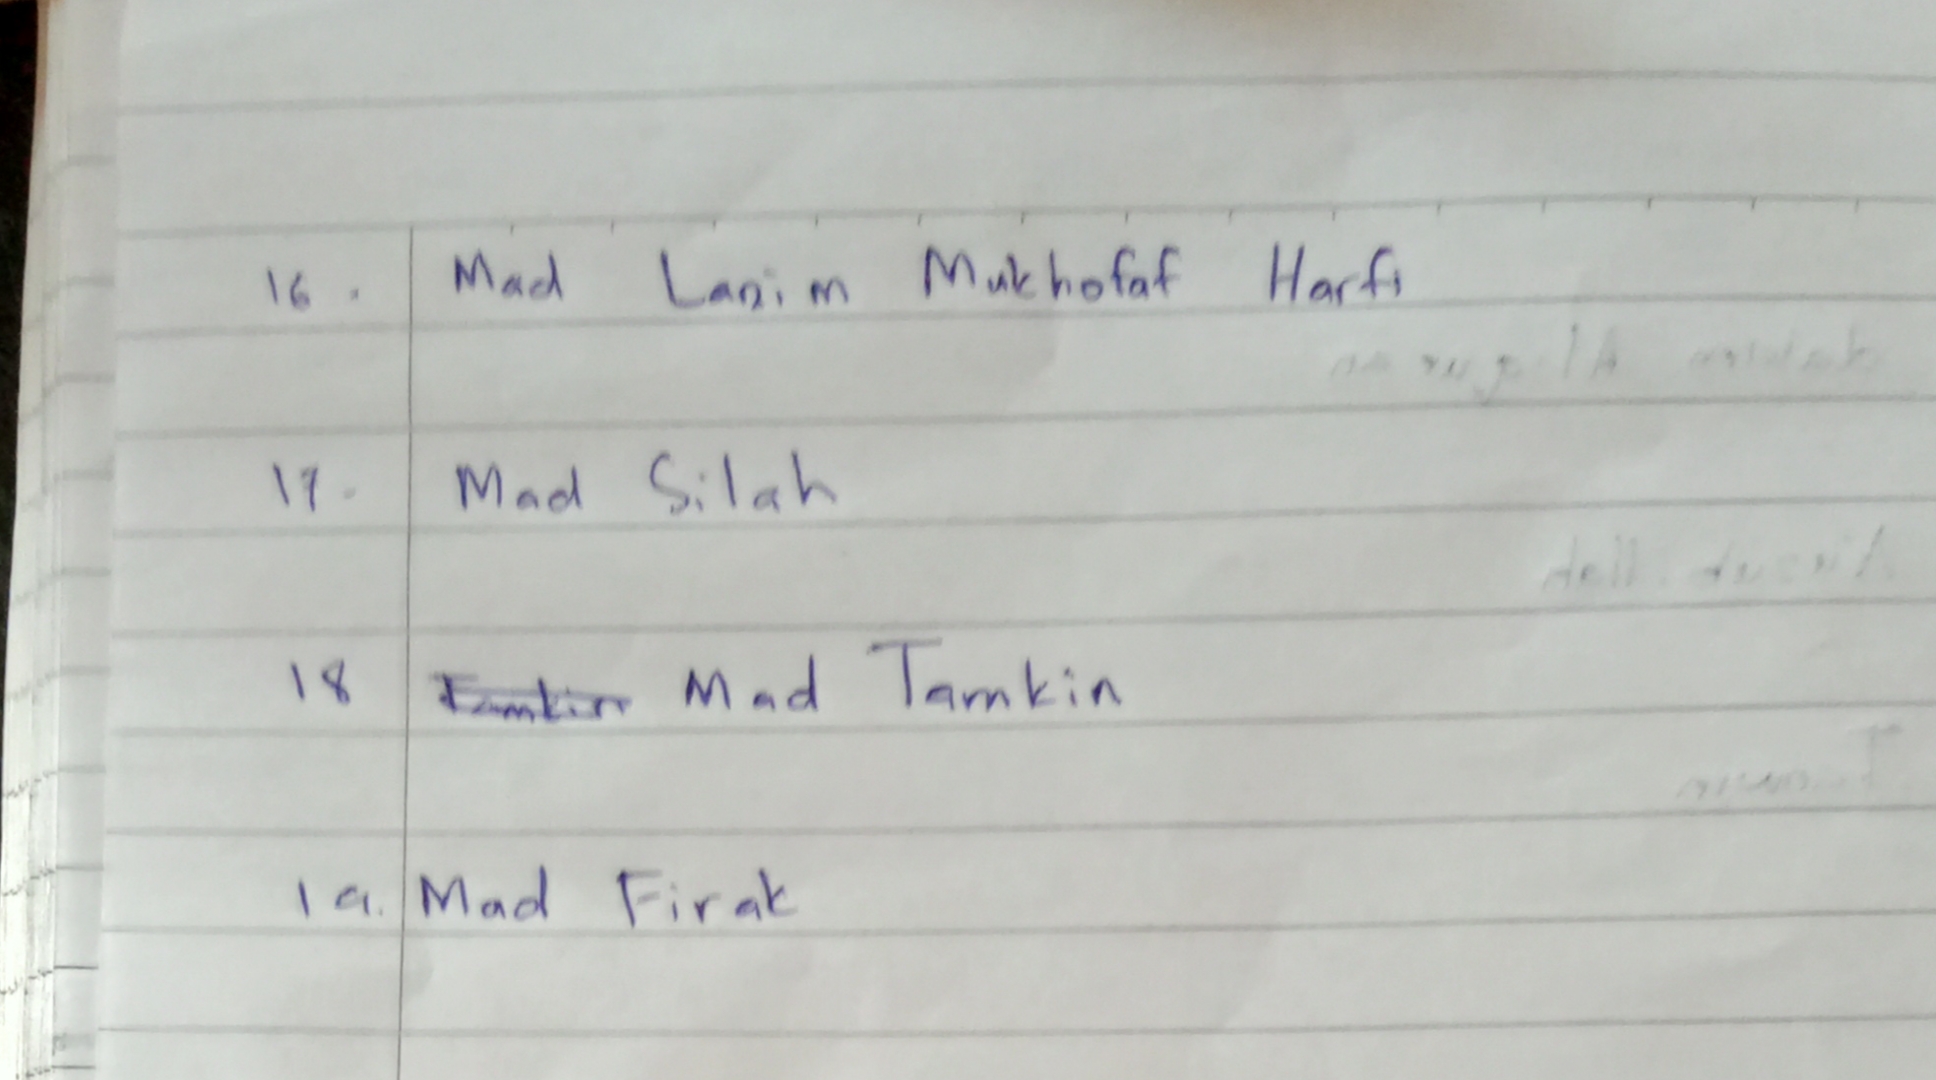 16. Mad Lazim Mukhofaf Harfi
17. Mad Silah
18 Tamkin Mad Tamkin
19. Mad Firak